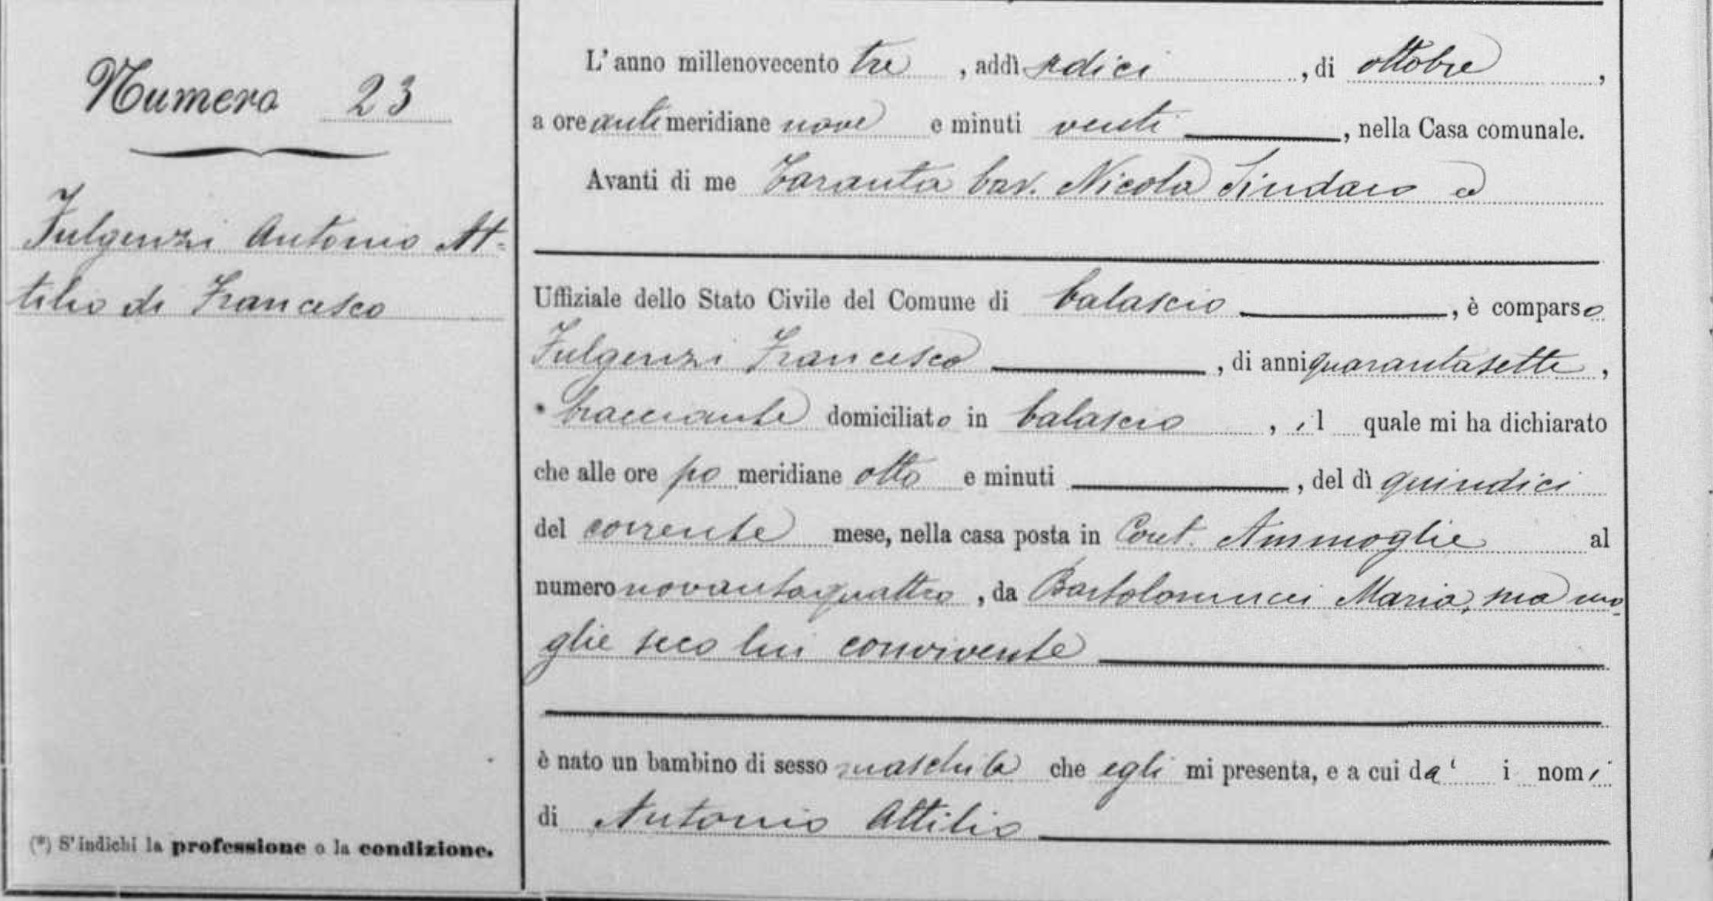 Numero 23
Fulgenzi Antonio At-
tilio di Francesco
(*) S'indichi la professione o la condizione.
L'anno millenovecento tre, addì sedici, di ottobre,
a ore antimeridiane nove e minuti venti, nella Casa comunale.
Avanti di me Taranta Cav. Nicola Sindaco e
Uffiziale dello Stato Civile del Comune di Calascio, è comparso
Fulgenzi Francesco, di anni quarantasette,
* bracciante domiciliato in Calascio, il quale mi ha dichiarato
che alle ore pomeridiane otto e minuti, del dì quindici
del corrente mese, nella casa posta in Cont. Ammoglie al
numero novantaquattro, da Bartolomucci Maria, sua mo-
glie seco lui convivente
è nato un bambino di sesso maschile che egli mi presenta, e a cui da' i nomi
di Antonio Attilio